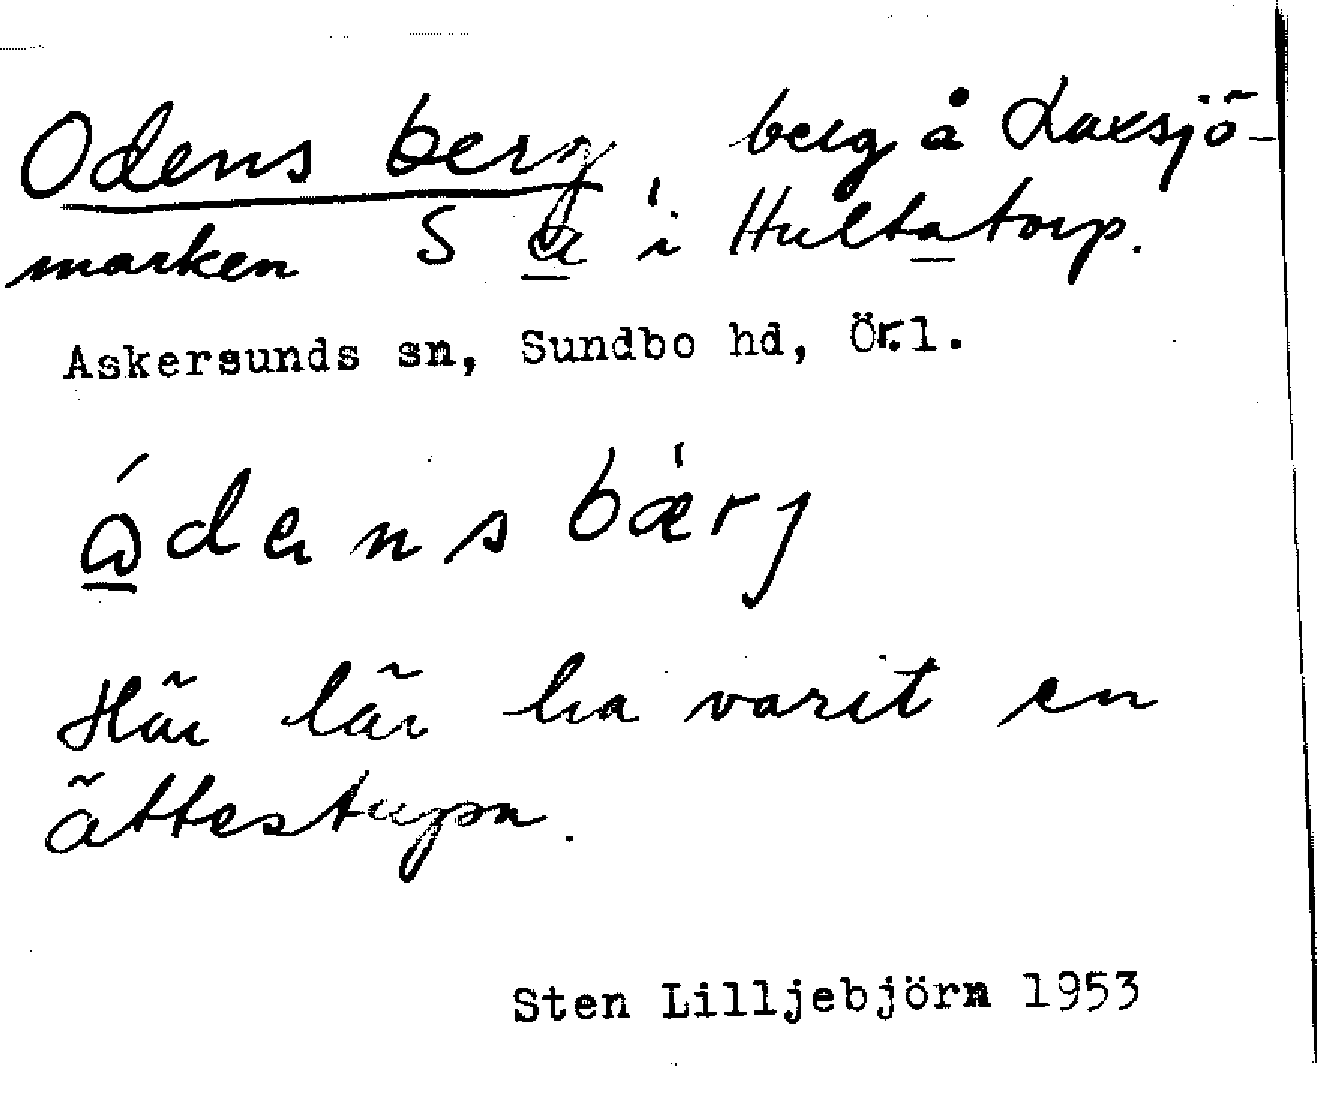 Odens berg, berg å Laxsjö-
marken S a i Hultatorp.
Askersunds sn, Sundbo hd, Ör.l.
ɷ́dɘnsbær̀j
Här lär ha varit en
ättestupa.
Sten Lilljebjörn 1953